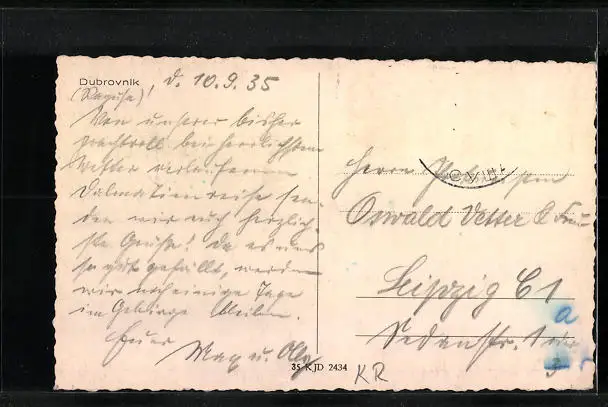 Dubrovnik d. 10.9.35
(Ragusa)!
Von unserer bisher
prachtvoll bei herrlichstem
Wetter verlaufenen
Dalmatienreise sen-
den wir euch herzlich-
ste Grüße! Da es uns
so gut gefällt, werden
wir noch einige Tage
im Gebirge bleiben.
Euer
Max u. Olly
Herrn
Oswald Vetter & Frau
Leipzig C 1
Sedanstr. 1
a
3
35 KJD 2434
KR